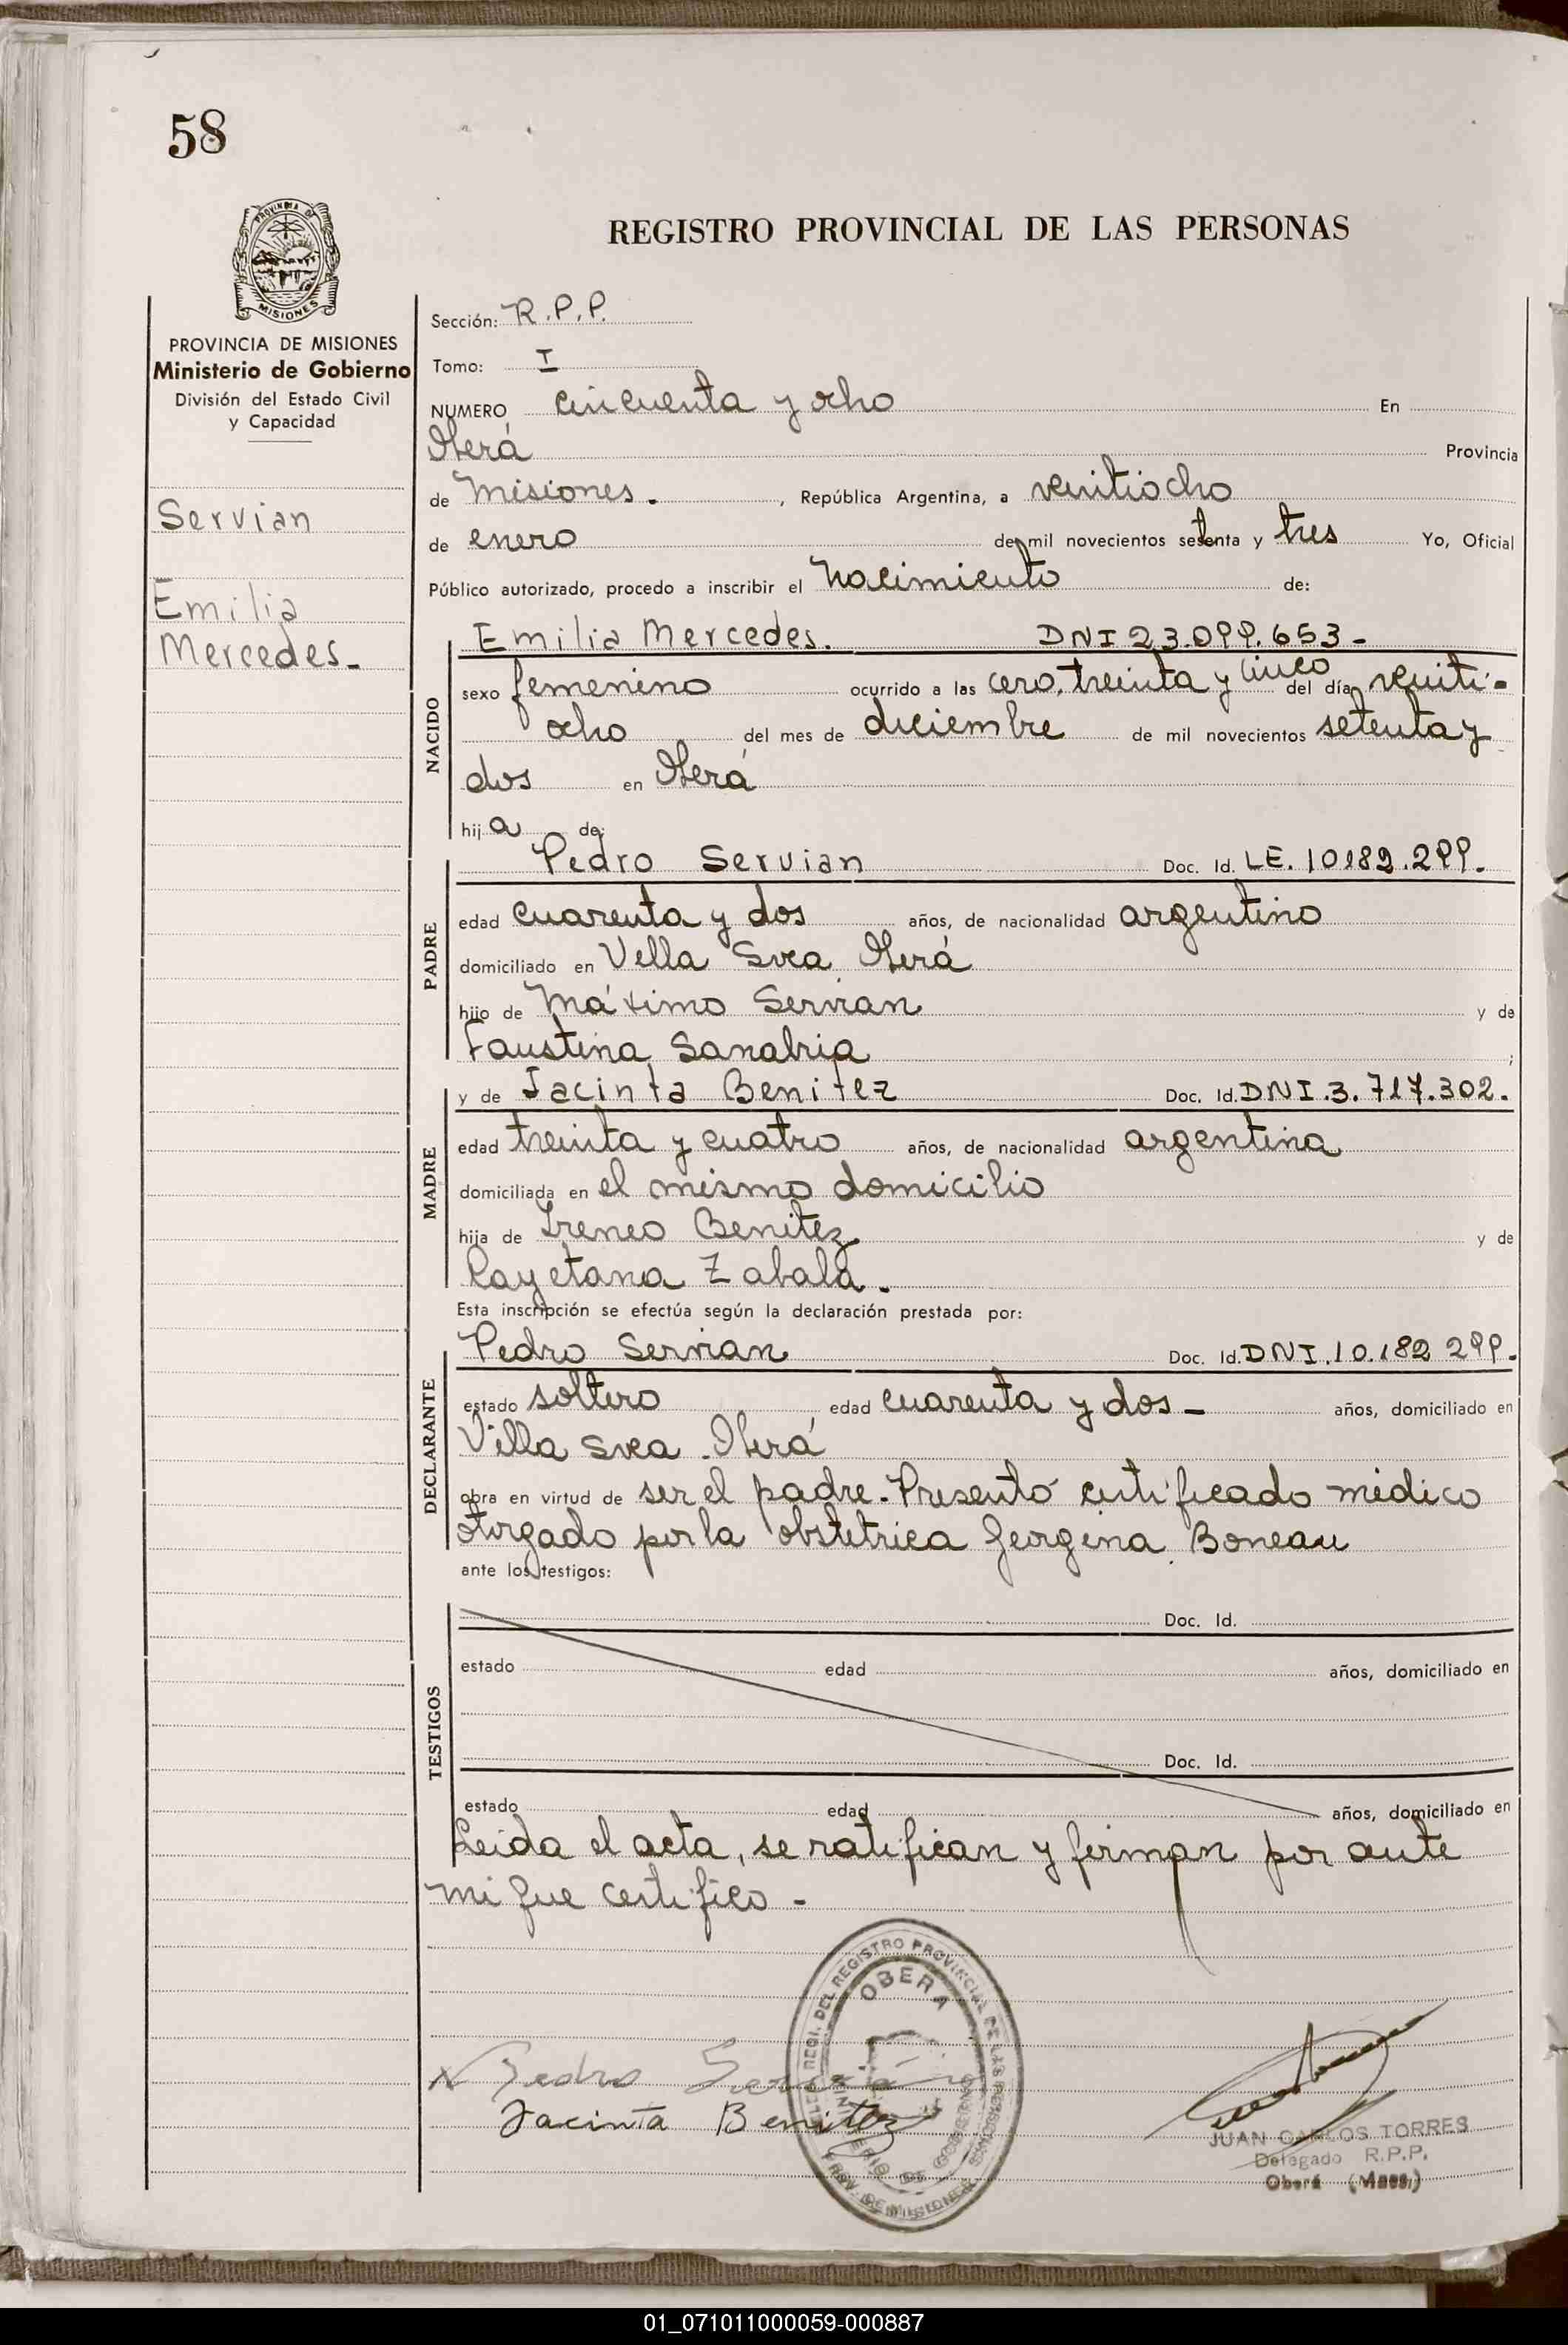 58
REGISTRO PROVINCIAL DE LAS PERSONAS
PROVINCIA DE MISIONES
Ministerio de Gobierno
División del Estado Civil
y Capacidad
Servian
Emilia
Mercedes-
Sección: R.P.P.
Tomo: I
NUMERO cincuenta y ocho En
Oberá Provincia
de Misiones. , República Argentina, a veintiocho
de enero de mil novecientos setenta y tres Yo, Oficial
Público autorizado, procedo a inscribir el Nacimiento de:
NACIDO
Emilia Mercedes. DNI 23.099.653-
sexo femenino ocurrido a las cero, treinta y cinco del día veinti-
ocho del mes de diciembre de mil novecientos setenta y
dos en Oberá
hija de:
PADRE
Pedro Servian Doc. Id. LE. 10182.299.
edad cuarenta y dos años, de nacionalidad argentino
domiciliado en Vella Svea Oberá
hijo de Máximo Servian y de
Faustina Sanabria ;
MADRE
y de Jacinta Benitez Doc. Id. DNI.3.717.302.
edad treinta y cuatro años, de nacionalidad argentina
domiciliada en el mismo domicilio
hija de Ireneo Benitez y de
Cayetana Zabala.
Esta inscripción se efectúa según la declaración prestada por:
DECLARANTE
Pedro Servian Doc. Id. DNI.10.182 299.
estado soltero edad cuarenta y dos - años, domiciliado en
Villa Svea. Oberá
obra en virtud de ser el padre. Presentó certificado médico
otorgado por la obstetrica Georgina Boneau
ante los testigos:
TESTIGOS
Doc. Id.
estado edad años, domiciliado en
Doc. Id.
estado edad años, domiciliado en
Leida el acta, se ratifican y firman por ante
mi que certifico -
REGISTRO PROVINCIAL DE LAS PERSONAS
OBERA
MINISTERIO DE GOBIERNO
PROV. DE MISIONES
Pedro Servián
Jacinta Benitez
JUAN CARLOS TORRES
Delegado R.P.P.
Oberá (Mnes.)
01_071011000059-000887